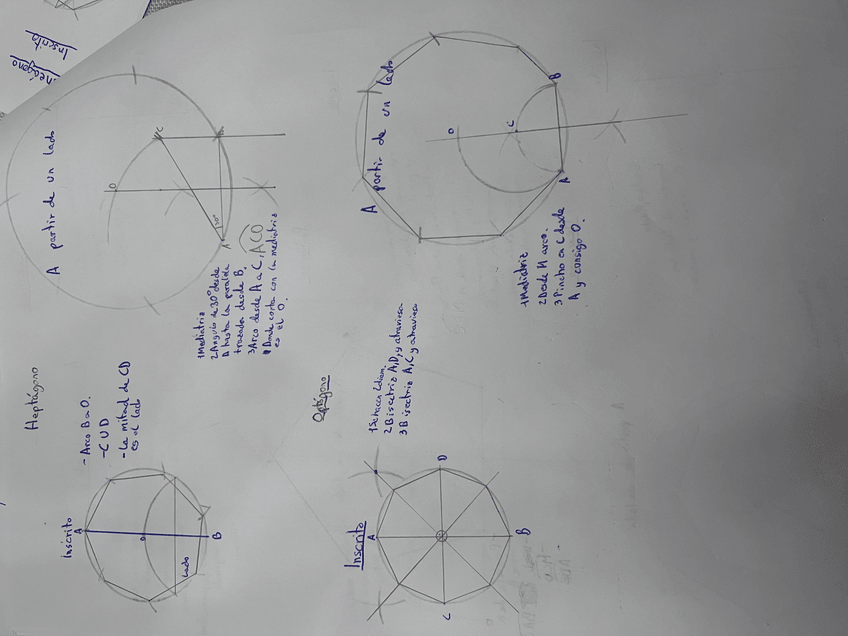 Heptágono
Inscrito
A
O
B
Lado
- Arco B a O.
- C U D
- La mitad de CD
es el lado
A partir de un lado
O
C
B
A
30°
1 Mediatriz
2 Angulo de 30° desde
A hasta la paralela
trazada desde B.
3 Arco desde A a C, ACO
Donde corta con la mediatriz
es el O.
Optágono
Inscrito
A
D
B
C
1 Se hacen 2 diam.
2 Bisectriz A,D, y atraviesa
3 Bisectriz A,C y atraviesa
A partir de un lado
O
C
B
A
1 Mediatriz
2 Desde M arco.
3 Pincho en C desde
A y consigo O.
Inscrito